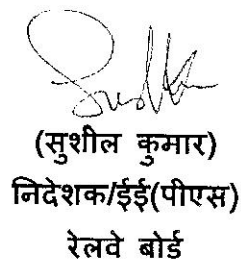 (सुशील कुमार)
निदेशक/ईई(पीएस)
रेलवे बोर्ड